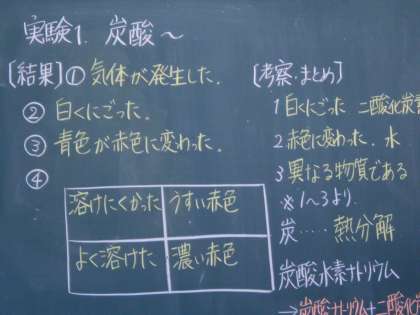 実験1. 炭酸~
[結果] ① 気体が発生した.
② 白くにごった.
③ 青色が赤色に変わった.
④
溶けにくかった うすい赤色
よく溶けた 濃い赤色
[考察・まとめ]
1 白くにごった 二酸化炭
2 赤色に変わった. 水
3 異なる物質である
※1~3より.
炭‥‥‥熱分解
炭酸水素ナトリウム
→炭酸ナトリウム+二酸化